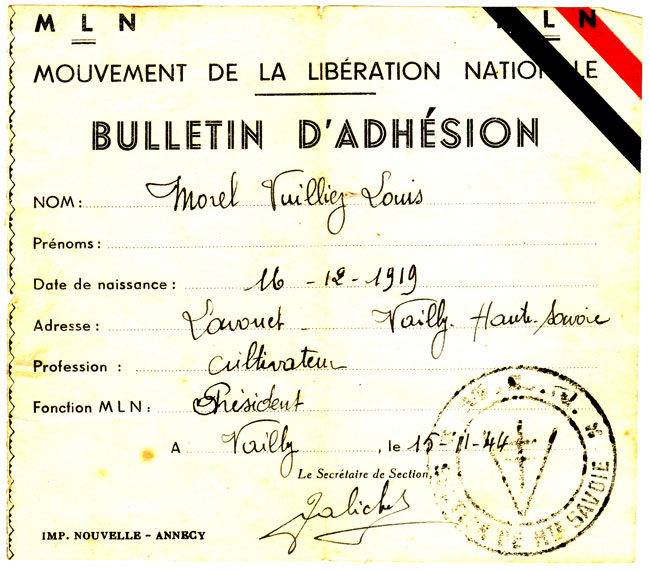 M L N M L N
MOUVEMENT DE LA LIBÉRATION NATIONALE
BULLETIN D'ADHÉSION
NOM : Morel Vuilliez Louis
Prénoms :
Date de naissance : 16 - 12 - 1919
Adresse : Lavouet Vailly Haute-Savoie
Profession : cultivateur
Fonction MLN : Président
A Vailly , le 15-11-44
Le Secrétaire de Section,
SECTION DE HTE SAVOIE
IMP. NOUVELLE - ANNECY